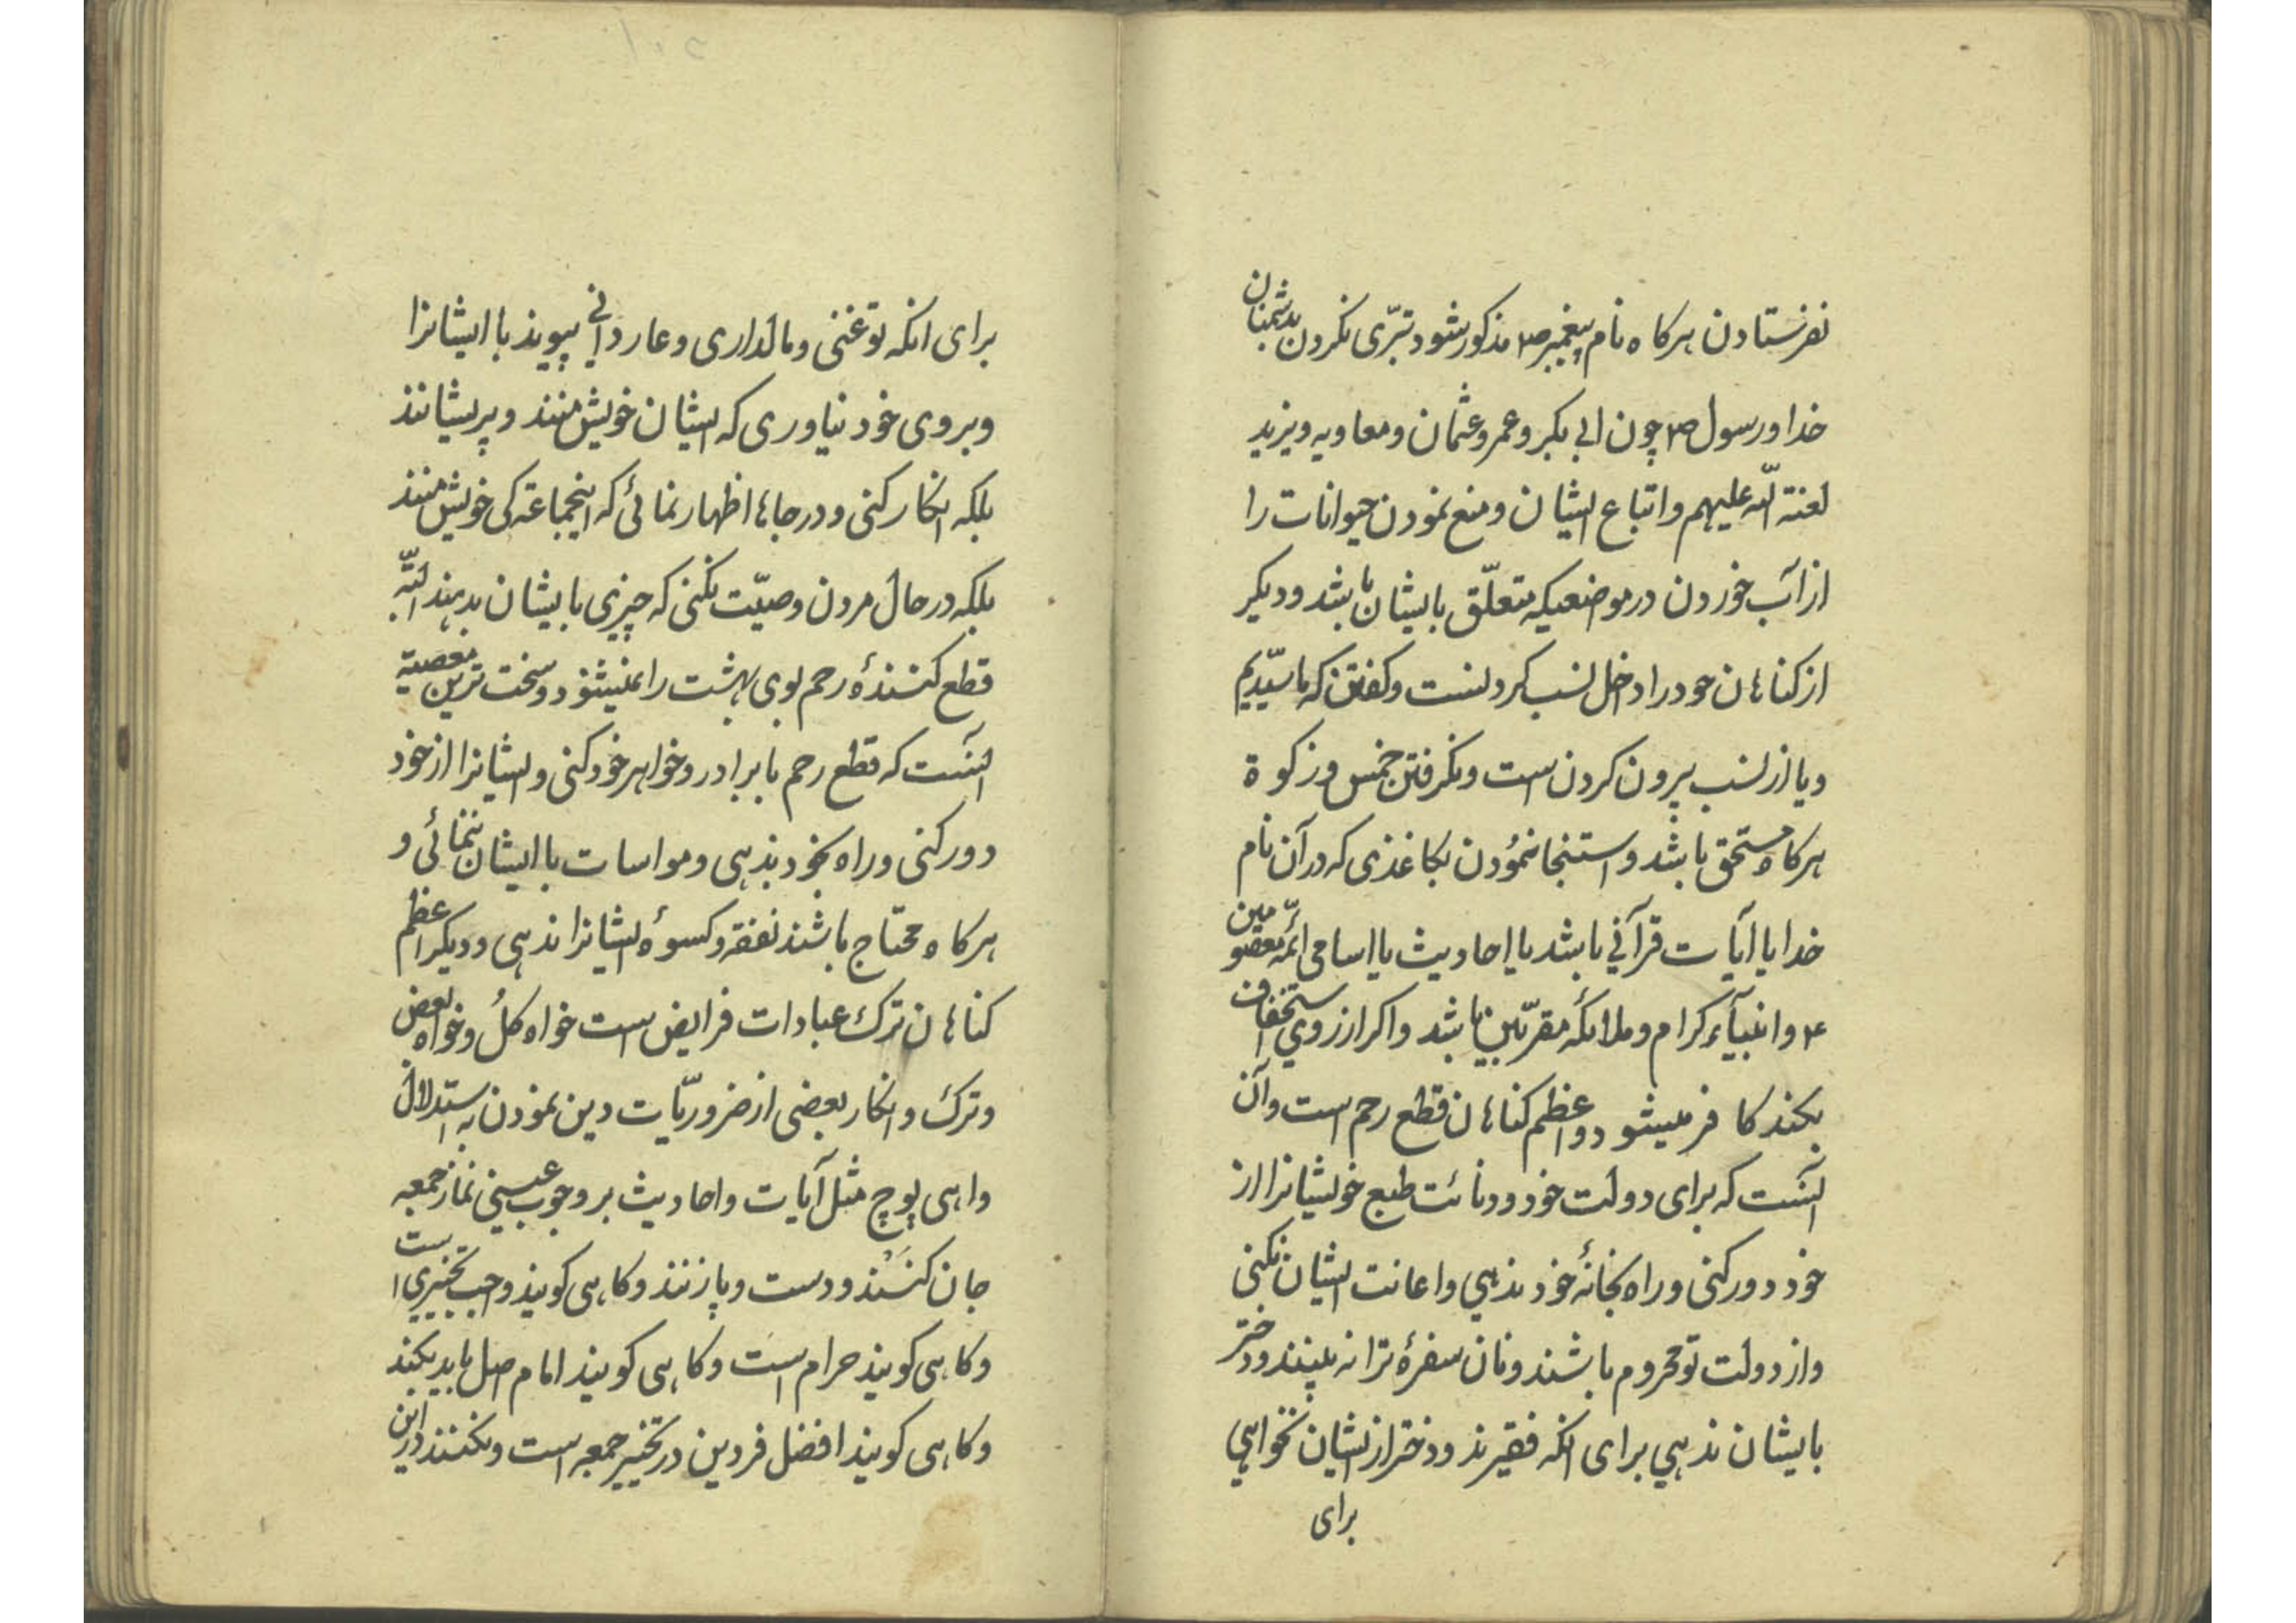 نفرستادن هرکاه نام پیغمبر ص۲ مذکور شود تبرّی نکردن بدشمنان
خدا ورسول ص۲ چون ابی بکر وعمر وعثمان ومعاویه ویزید
لعنة الله علیهم واتباع ایشان ومنع نمودن حیوانات را
از آب خوردن در موضعیکه متعلّق بایشان باشد ودیکر
از کناهان خود را داخل نسب کردنست وکفتن که ما سیّدیم
ویا از نسب بیرون کردن است ونکرفتن خمس وزکوة
هرکاه مستحق باشد واستنجا نمودن بکاغذی که در آن نام
خدا یا آیات قرآنی باشد یا احادیث یا اسامی ائمّه معصومین
۴ وانبیآء کرام وملائکه مقرّبین باشد واکر از روی استخفاف
بکند کافر میشود واعظم کناهان قطع رحم است وآن
آنست که برای دولت خود ودنائت طبع خویشانرا از
خود دور کنی وراه بخانهٔ خود ندهی واعانت ایشان نکنی
واز دولت تو محروم باشند ونان سفرهٔ ترا نه بینند ودختر
بایشان ندهی برای انکه فقیرند ودختر از ایشان نخواهی
برای
برای انکه تو غنی ومالداری وعار دانی پیوند با ایشانرا
وبروی خود نیاوری که ایشان خویش منند وپریشانند
بلکه انکار کنی ودر جاها اظهار نمائی که اینجماعة کی خویش منند
بلکه در حال مردن وصیّت نکنی که چیزی بایشان بدهند البتّه
قطع کنندهٔ رحم بوی بهشت را نمیشنود وسخت ترین معصیة
آنست که قطع رحم با برادر وخواهر خود کنی وایشانرا از خود
دور کنی وراه بخود ندهی ومواسات با ایشان ننمائی و
هرکاه محتاج باشند نفقه وکسوهٔ ایشانرا ندهی ودیکر اعظم
کناهان ترک عبادات فرایض است خواه کلُ وخواه بعض
وترک وانکار بعضی از ضروریّات دین نمودن به استدلال
واهی پوچ مثل آیات واحادیث بر وجوب عینی نماز جمعه
جان کنند ودست وپا زنند وکاهی کویند واجب تخییری است
وکاهی کویند حرام است وکاهی کویند امام اصل باید بکند
وکاهی کویند افضل فردین در تخییر جمعه است ونکنند در این